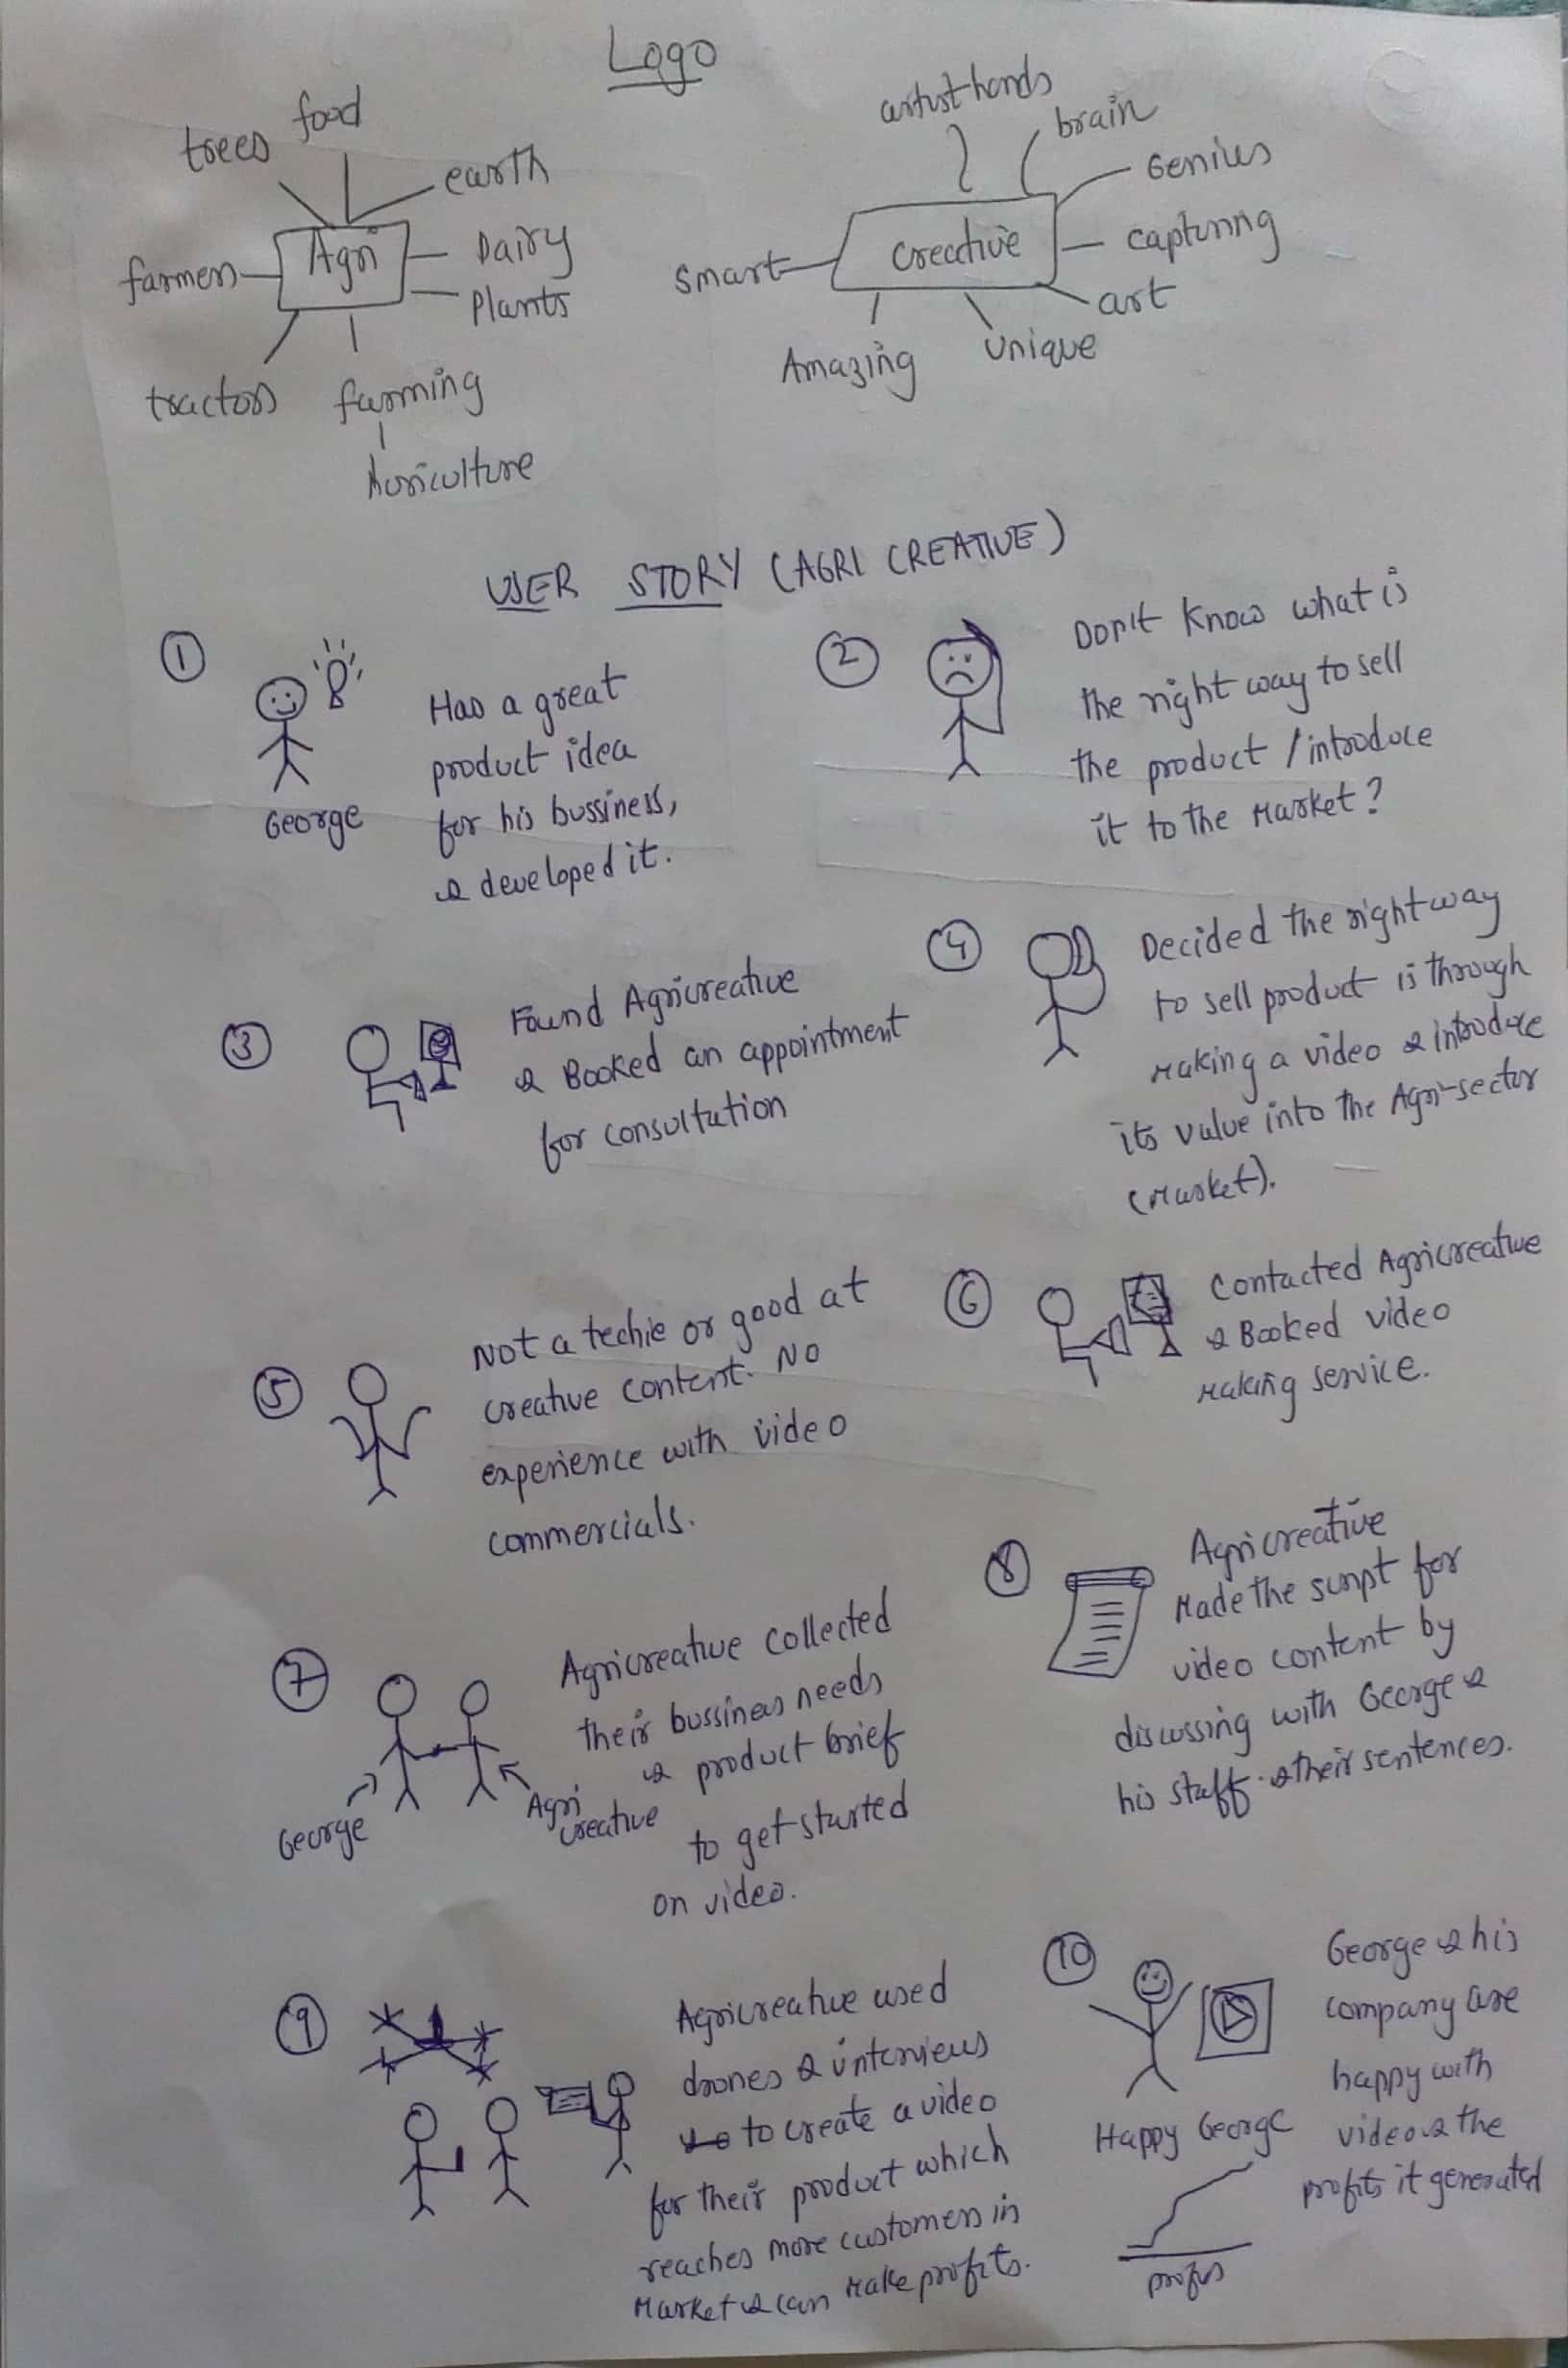 Logo
trees
food
earth
farmers
Agri
Dairy
Plants
tractors
farming
artist hands
brain
Genius
Smart
Creative
Capturing
art
Amazing
Unique
USER STORY (AGRI CREATIVE)
1
Has a great
product idea
for his bussiness,
& developed it.
George
2
Don't know what is
the right way to sell
the product / introduce
it to the Market?
3
Found Agricreative
& Booked an appointment
for consultation
4
Decided the right way
to sell product is through
Making a video & introduce
its value into the Agri-sector
(Market).
5
Not a techie or good at
creative content. No
experience with video
commercials.
6
Contacted Agricreative
& Booked video
Making service.
7
Agricreative collected
their bussiness needs
& product brief
to get started
on video.
George
Agri
creative
8
Agricreative
Made the script for
video content by
discussing with George &
his staff & their sentences.
9
Agricreative used
drones & interviews
to create a video
for their product which
reaches more customers in
Market & can Make profits.
10
George & his
company are
happy with
video & the
profits it generated
Happy George